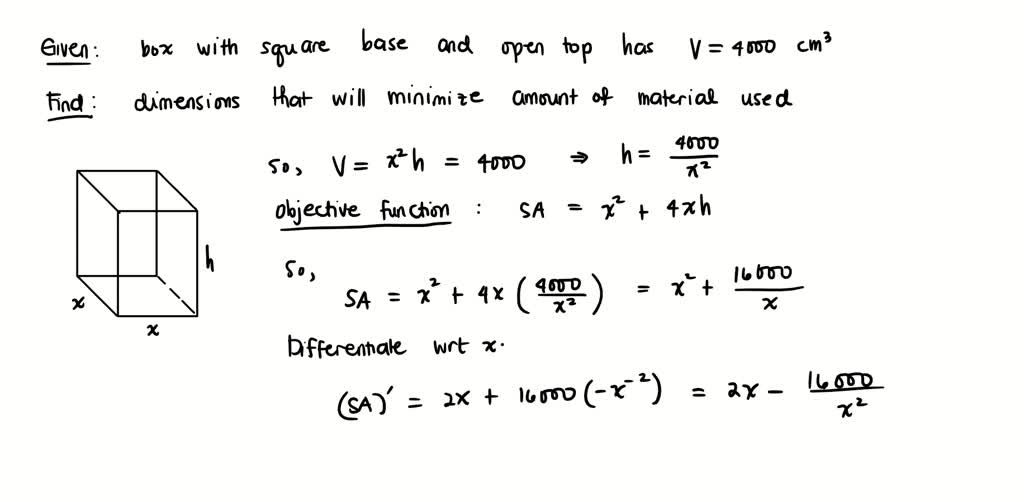 Given: box with square base and open top has V = 4000 cm³
Find: dimensions that will minimize amount of material used
So, V = x²h = 4000 ⇒ h = 4000/x²
Objective function: SA = x² + 4xh
h
So,
SA = x² + 4x (4000/x²) = x² + 16000/x
x
x
Differentiate wrt x.
(SA)' = 2x + 16000(-x⁻²) = 2x - 16000/x²